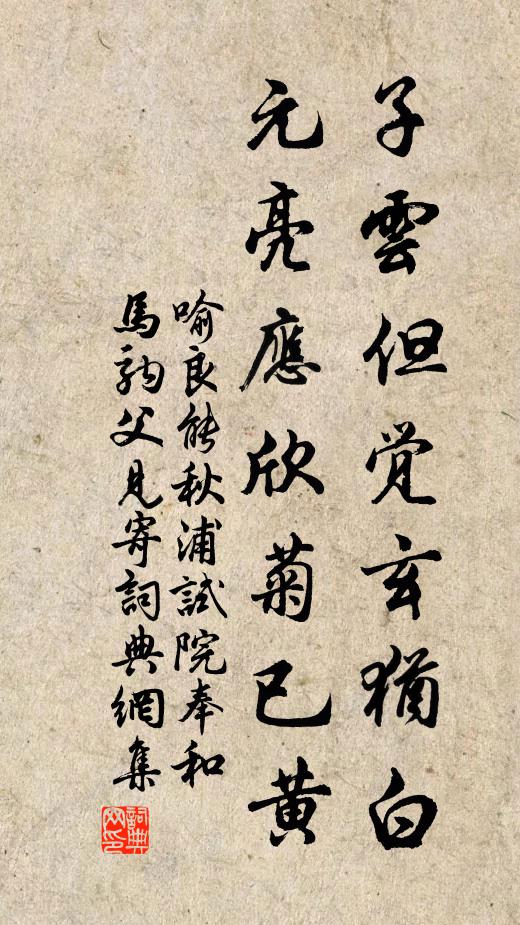 子雲但覺玄猶白
元亮應欣菊已黄
喻良能秋浦試院奉和
馬駒父見寄詞典網集
詞典網印